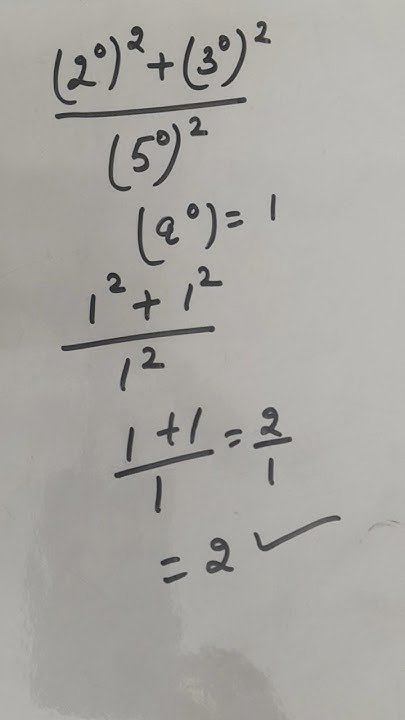 (2⁰)² + (3⁰)²
(5⁰)²
(a⁰) = 1
1² + 1²
1²
1 + 1 = 2
1 1
= 2 ✓